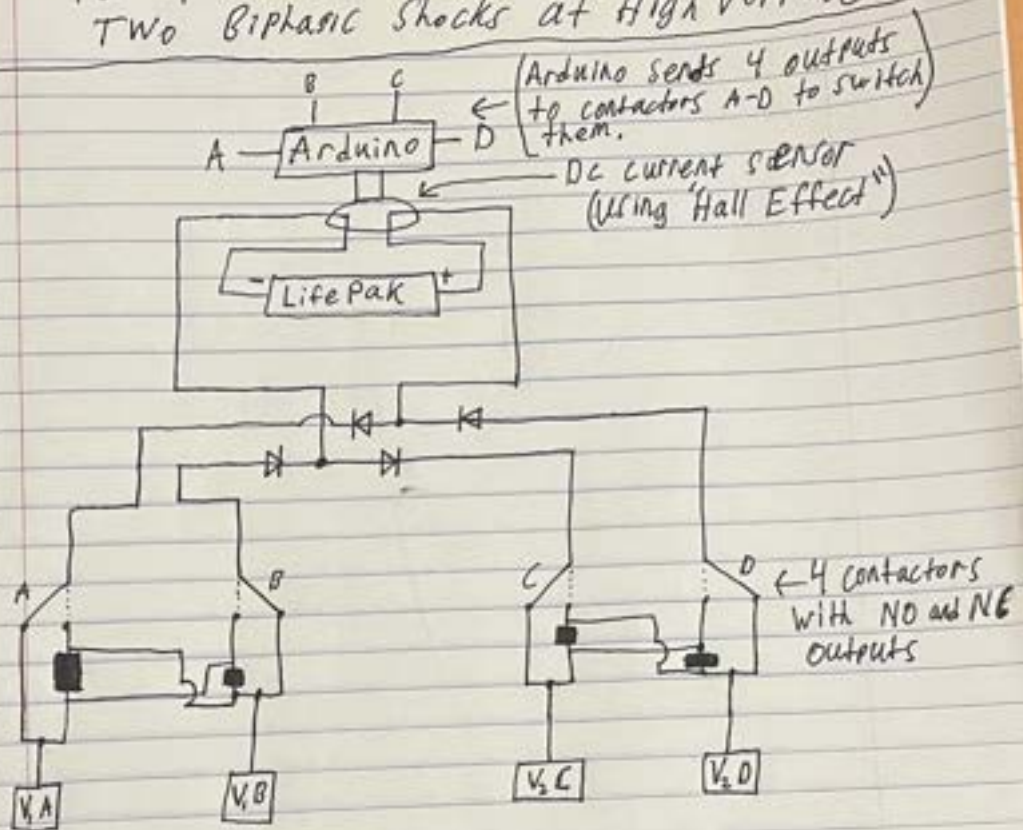 TWO Biphasic Shocks at High
B C
(Arduino sends 4 outputs
to contactors A-D to switch
them.)
A Arduino D
DC current sensor
(Using "Hall Effect")
- +
LifePak
A B C D
4 contactors
with NO and NC
outputs
V₁A V₁B V₂C V₂D